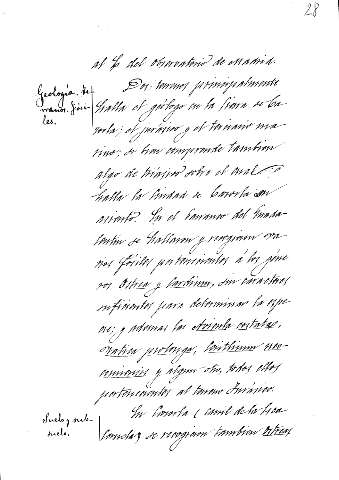 28
al E. del observatorio de Madrid.
Geología. Te-
rrenos. fósi-
les.
Dos terrenos principalmente
halla el geólogo en la finca de Ca-
zorla; el jurásico y el terciario ma-
rino; se bien comprende tambien
algo de triásico sobre el cual se
halla la Ciudad de Cazorla en
asiento. En el barranco del Guada-
lentin se hallaron y recogieron va-
rios fósiles pertenecientes á los géne-
ros Ostrea y Cardium, sin caracteres
suficientes para determinar la espe-
cie; y ademas las Avicula costata,
Natica prolonga,
y algun otro, todos ellos
pertenecientes al terreno Jurásico.
Suelo y sub-
suelo.
En Cazorla (Carril de la Esca-
lanuela) se recogieron tambien Ostreas